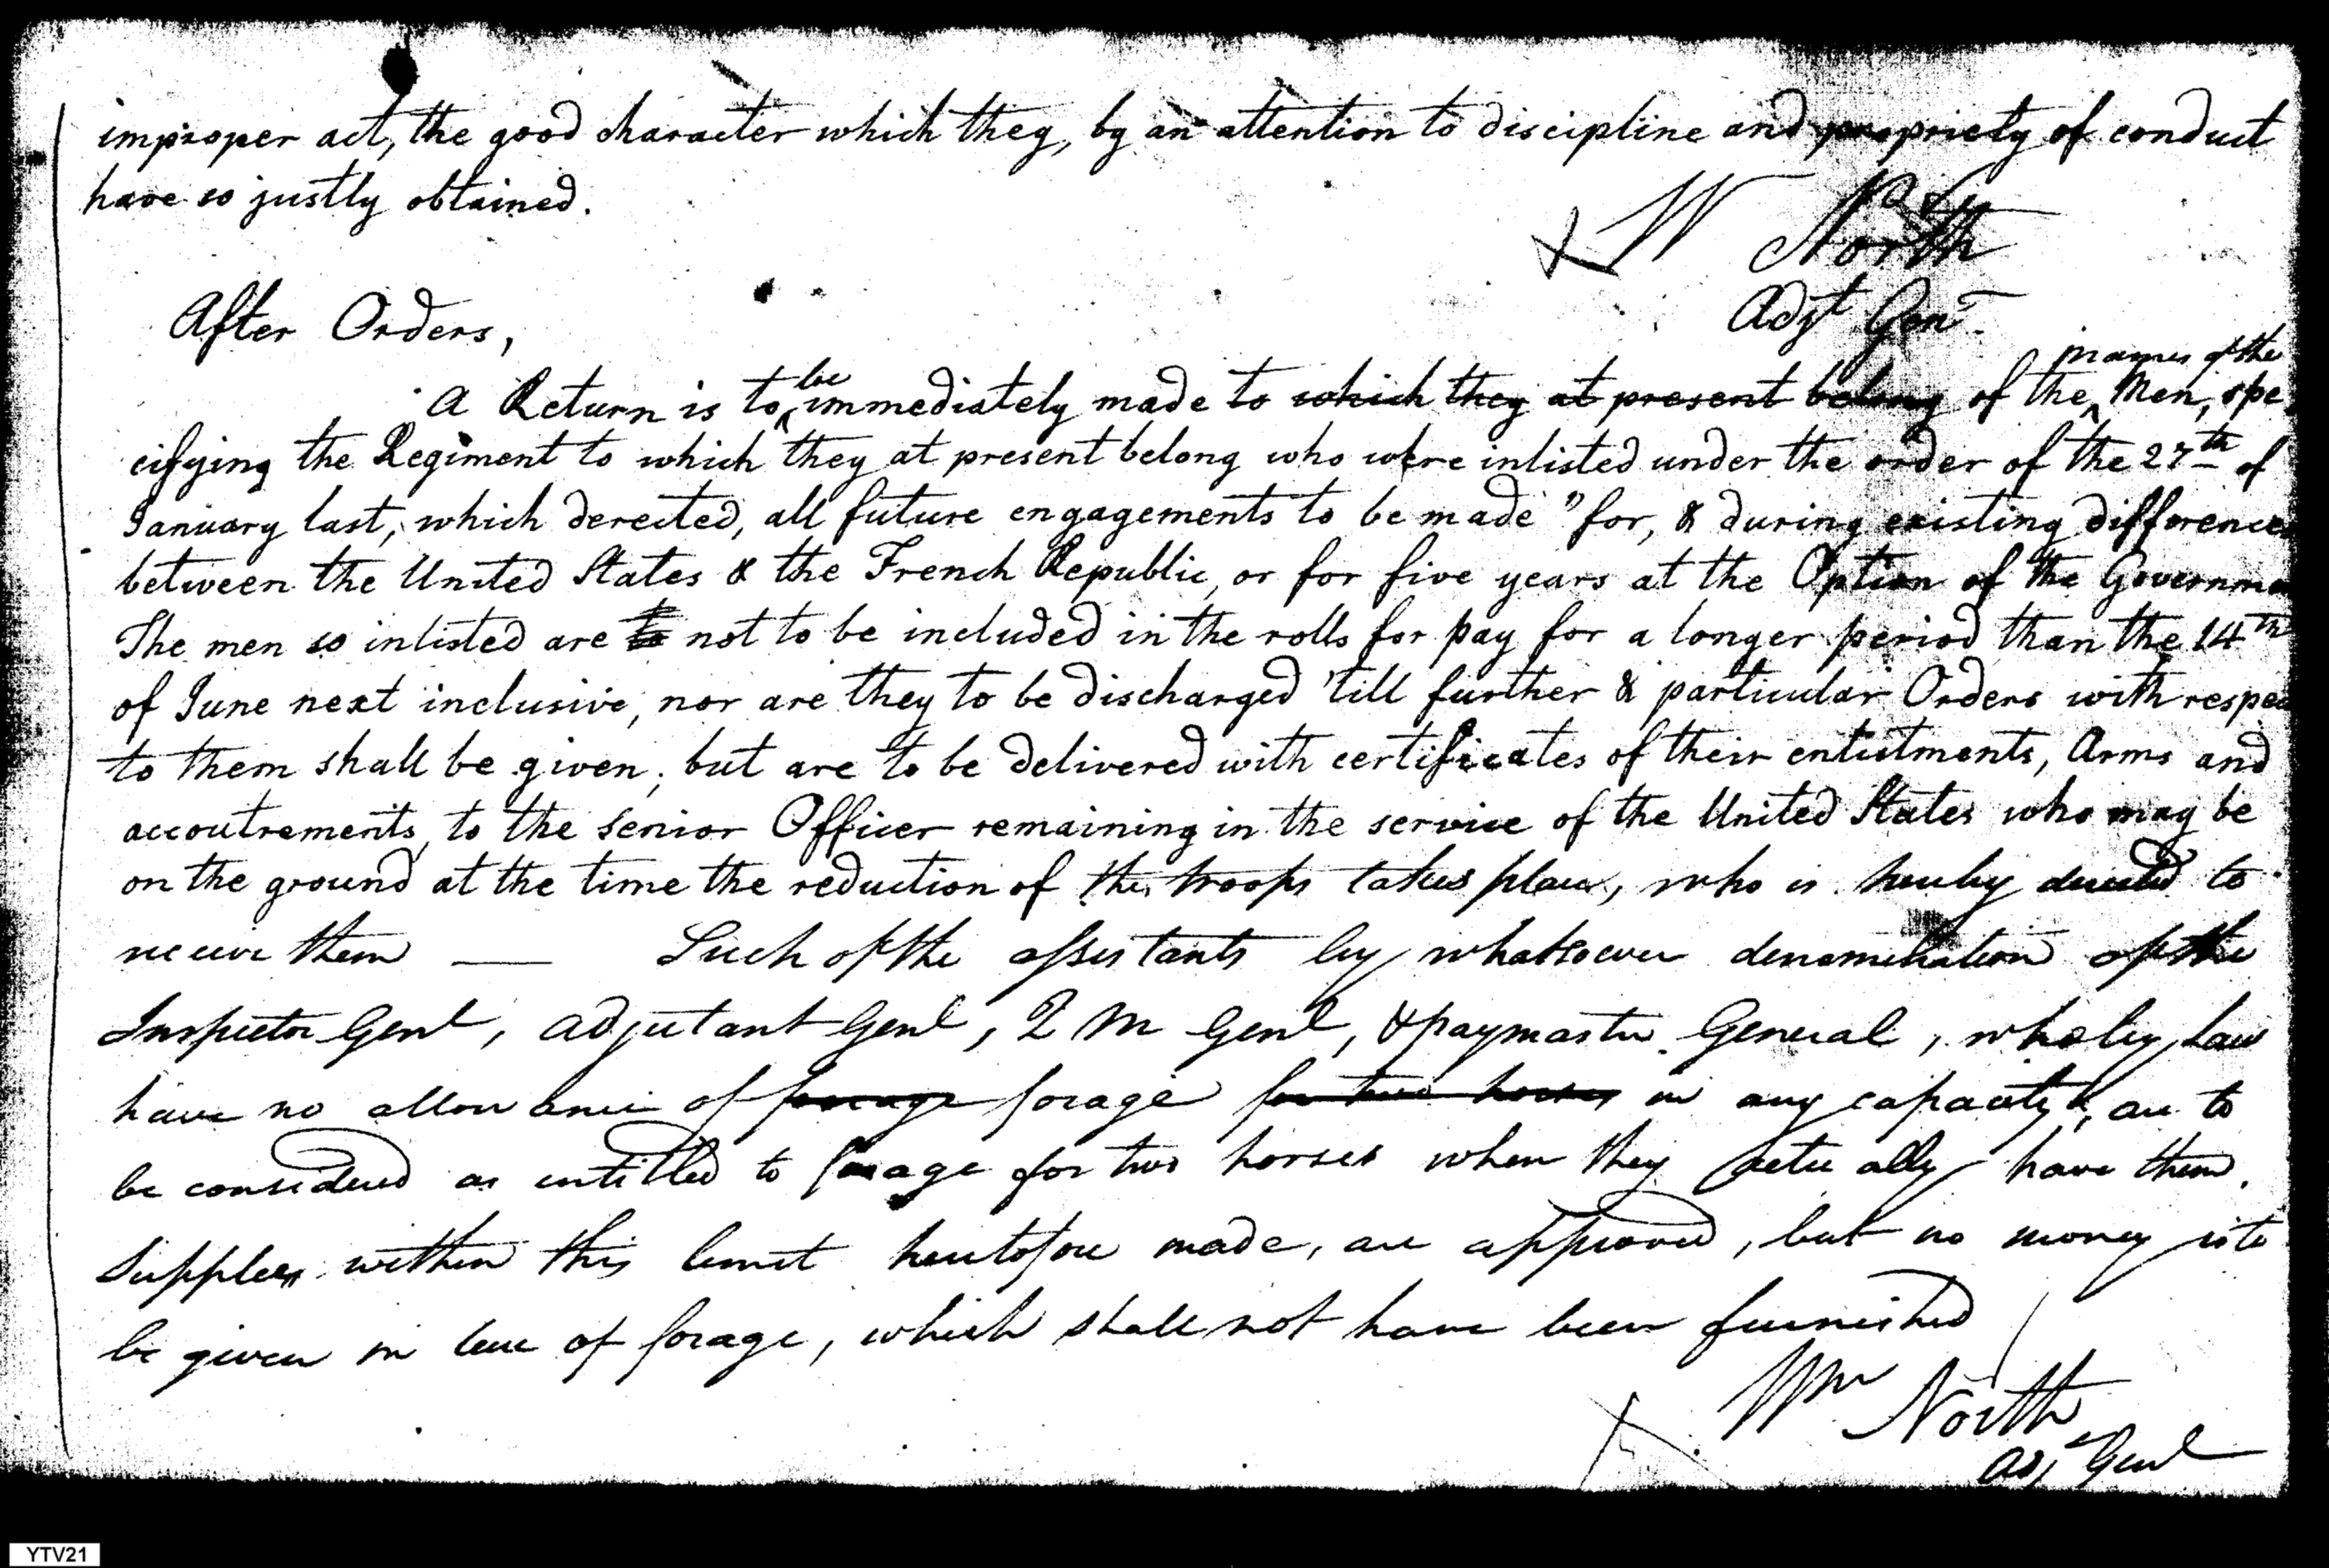 improper act, the good character which they, by an attention to discipline and propriety of conduct
have so justly obtained.
W North
Adjt Genl
After Orders,
names of the
be
A Return is to immediately made to which they at present belong of the Men, spe
cifying the Regiment to which they at present belong who were inlisted under the order of the 27th of
January last, which derected, all future engagements to be made "for, & during existing difference
between the United States & the French Republic, or for five years at the Option of the Governme
The men so inlisted are to not to be included in the rolls for pay for a longer period than the 14th
of June next inclusive, nor are they to be discharged 'till further & particular Orders with respec
to them shall be given; but are to be delivered with certificates of their enlistments, Arms and
accoutrements, to the senior Officer remaining in the service of the United States who may be
on the ground at the time the reduction of the troops takes place, who is hereby directed to
receive them — Such of the assistants by whatsoever denomination of the
Inspector Genl, Adjutant Genl, Q M Genl, & paymaster General, who by Law
have no allowance of forage forage for two horses in any capacity, are to
be considered as entitled to forage for two horses when they actually have them.
Supplies within this limit heretofore made, are approved, but no money is to
be given in lieu of forage, which shall not have been furnished
Wm North
Adj Genl
YTV21